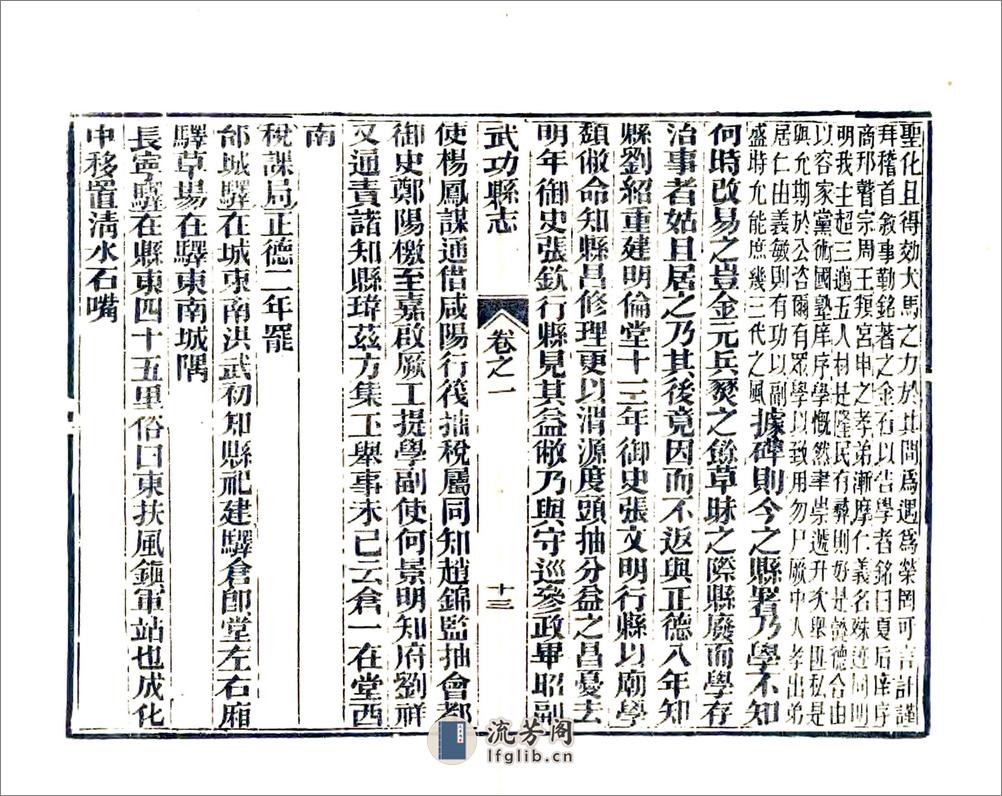 聖化且得効犬馬之力於其間爲遇爲榮罔可言計謹
拜稽首敘事勒銘著之金石以告學者銘曰夏后庠序
商邦瞽宗周王頖宮申之孝弟漸摩仁義名殊迹同
明我主超三邁五人材是隆民有彝則好是懿德合由
以容家黨術國塾庠序學慨然聿崇遞升氷舉匪私是
與允期於公咨爾有眾學以致用勿尸厥中入孝出弟
居仁由義敏則有功以副
盛時允能庶幾三代之風
據碑則今之縣署乃學不知
何時改易之豈金元兵燹之餘草昧之際縣廢而學存
治事者姑且居之乃其後竟因而不返與正德八年知
縣劉紹重建明倫堂十三年御史張文明行縣以廟學
頹敝命知縣昌修理更以渭源度頭抽分益之昌憂去
明年御史張欽行縣見其益敝乃與守巡參政畢昭副
武功縣志
卷之一
十三
使楊鳳謀通借咸陽行筏抽稅屬同知趙錦監抽會都
御史鄭陽檄至嘉啟厥工提學副使何景明知府劉祥
又通責諸知縣瑋茲方集工舉事未已云倉一在堂西
南
稅課局正德二年罷
邰城驛在城東南洪武初知縣祀建驛倉卽堂左右廂
驛草場在驛東南城隅
長寧驛在縣東四十五里俗曰東扶風鎚軍站也成化
中移置清水石嘴
流芳阁
lfglib.cn